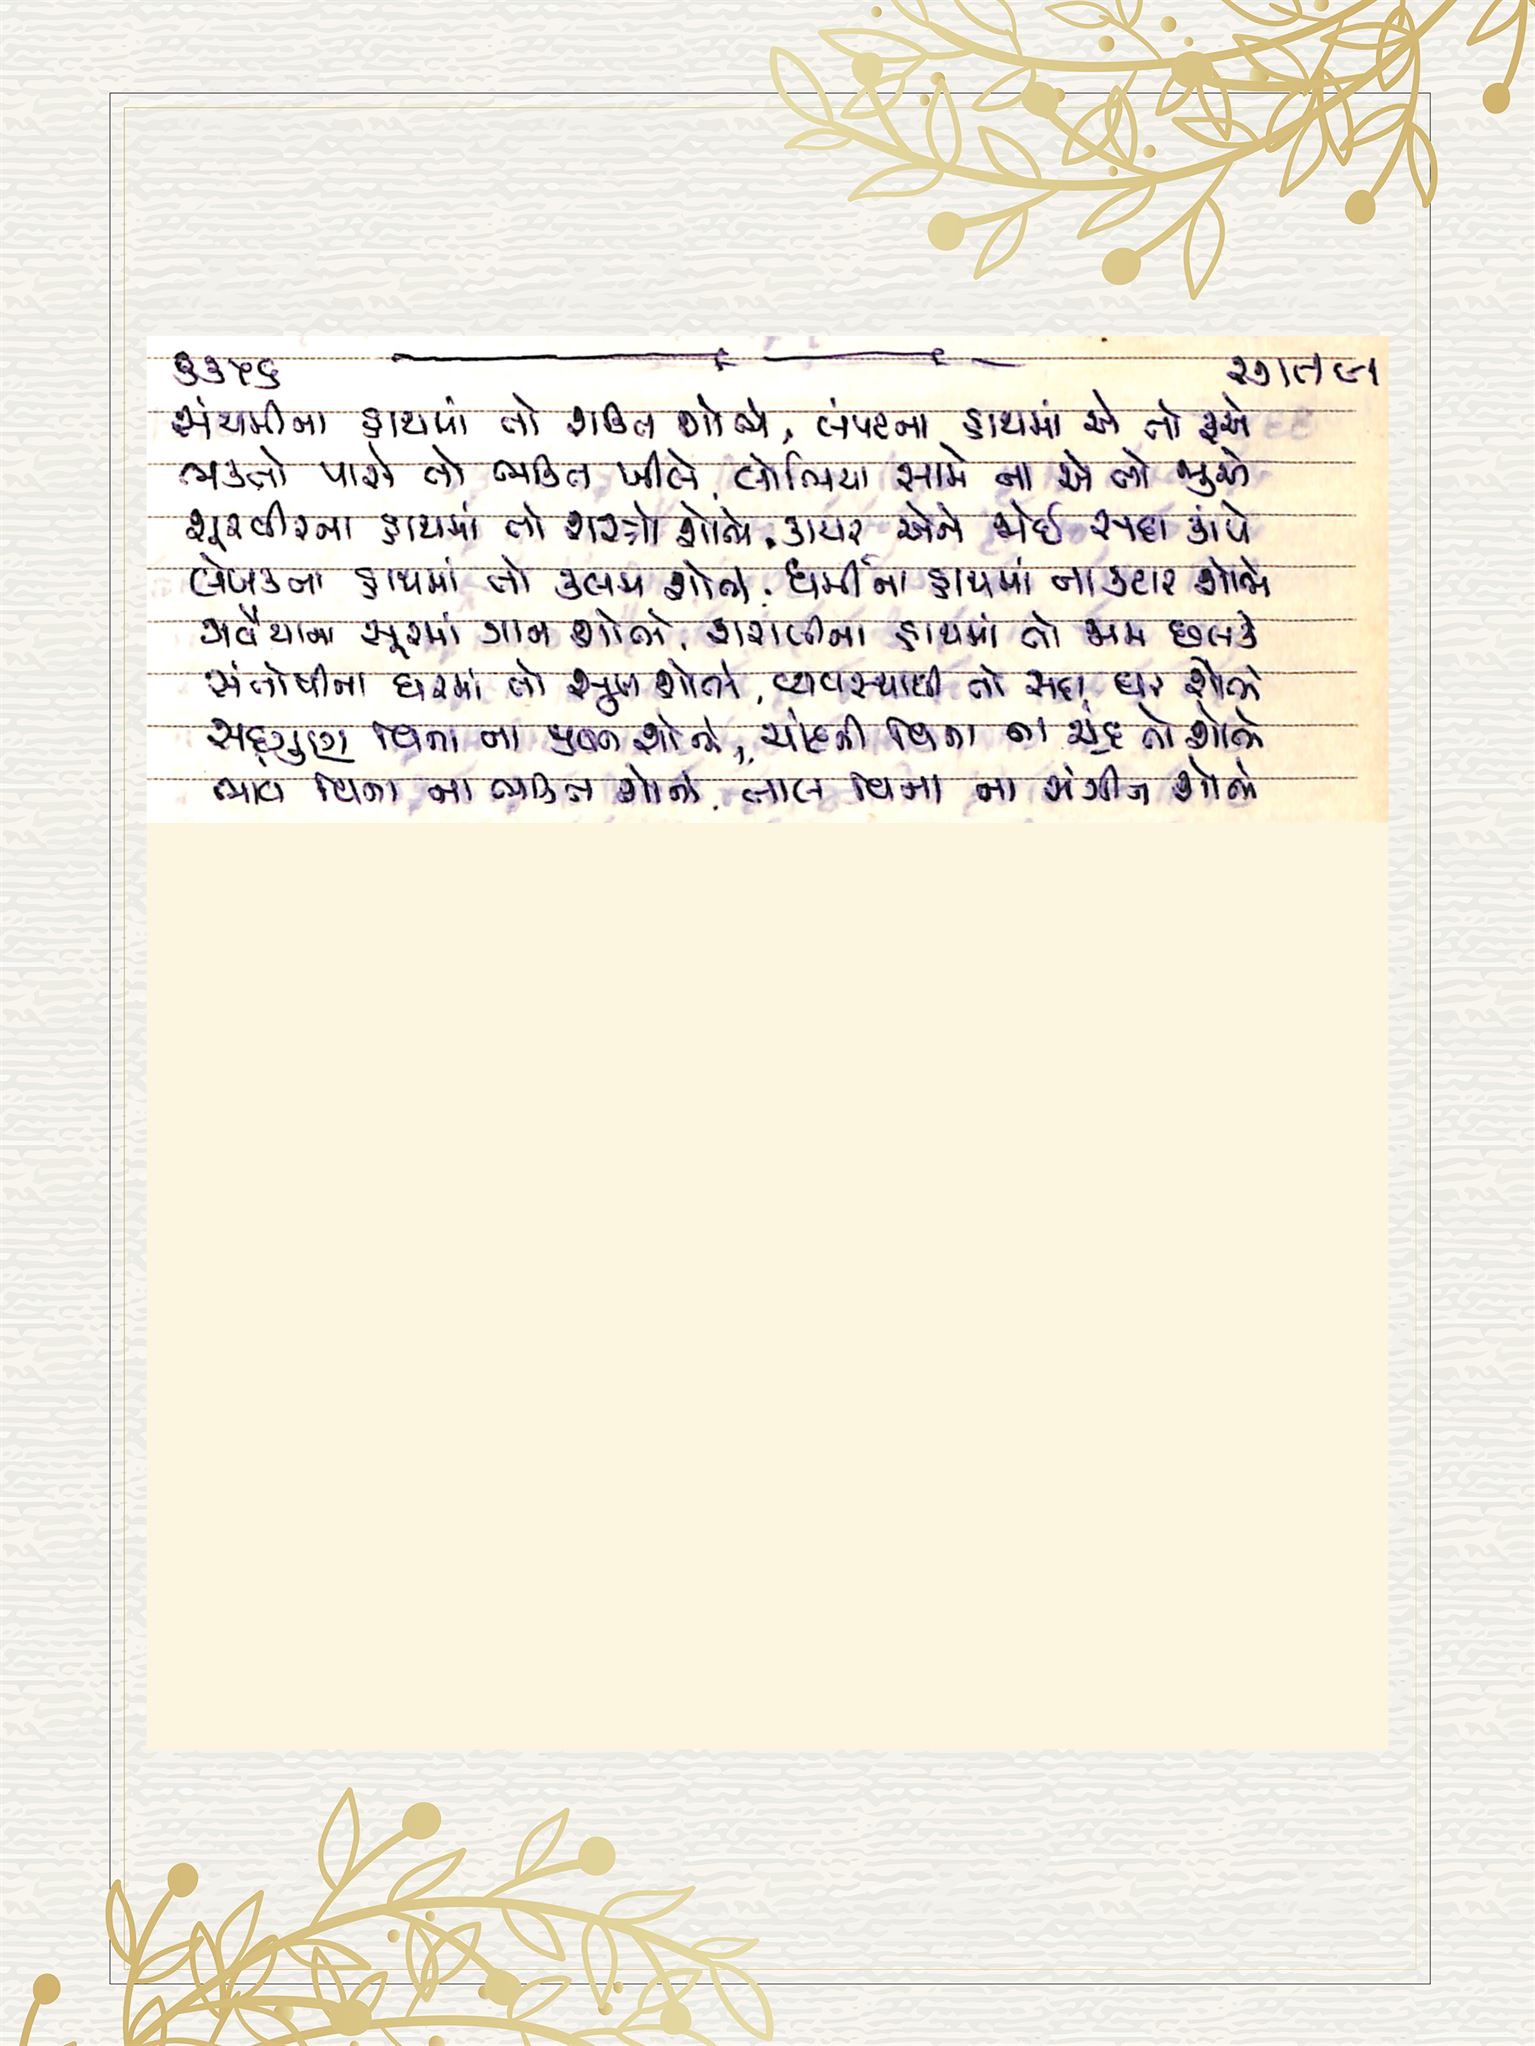 ૩૩૫૬
સંયમીના હાથમાં તો શક્તિ શોભે, લંપટના હાથમાં એ તો રૂએ
ભક્તો પાસે તો ભક્તિ ખીલે, લોભિયા સામે ના એ તો જુએ
શૂરવીરના હાથમાં તો શસ્ત્રો શોભે, કાયર એને જોઈ સદા કાંપે
લેખકના હાથમાં તો કલમ શોભે, ધર્મીના હાથમાં ના કટાર શોભે
ગવૈયાના સૂરમાં ગાન શોભે, શરાબીના હાથમાં તો જામ છલકે
સંતોષીના ઘરમાં તો સુખ શોભે, વ્યવસ્થાથી તો સદા ઘર શોભે
સદ્દગુણ વિના ના પૂજન શોભે, ચાંદની વિના ના ચંદ્ર તો શોભે
ભાવ વિના ના ભક્તિ શોભે, તાલ વિના ના સંગીત શોભે